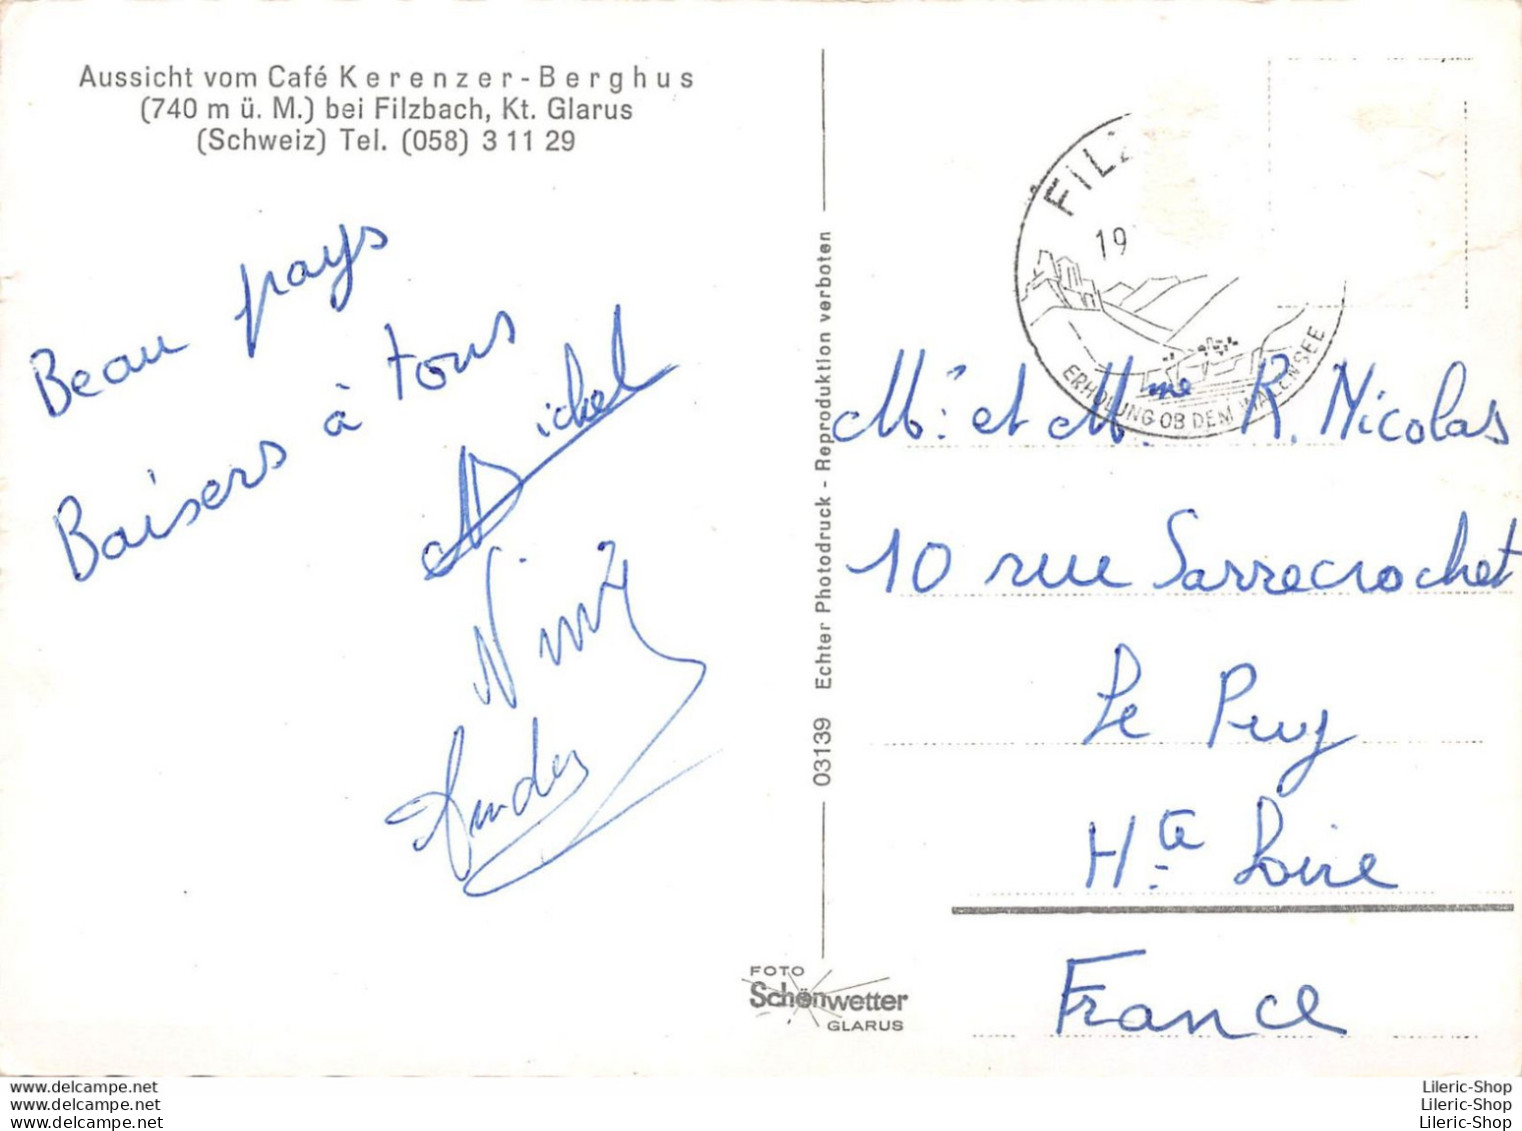 Aussicht vom Café Kerenzer-Berghus
(740 m ü. M.) bei Filzbach, Kt. Glarus
(Schweiz) Tel. (058) 3 11 29
Beau pays
Baisers à tous
Michel
03139 Echter Photodruck - Reproduktion verboten
FOTO
Schönwetter
GLARUS
FILZ
19
ERHOLUNG OB DEM WALENSEE
Mr. et Mme. R. Nicolas
10 rue Sarrecrochet
Le Puy
Hte Loire
France
www.delcampe.net
www.delcampe.net
www.delcampe.net
Lileric-Shop
Lileric-Shop
Lileric-Shop